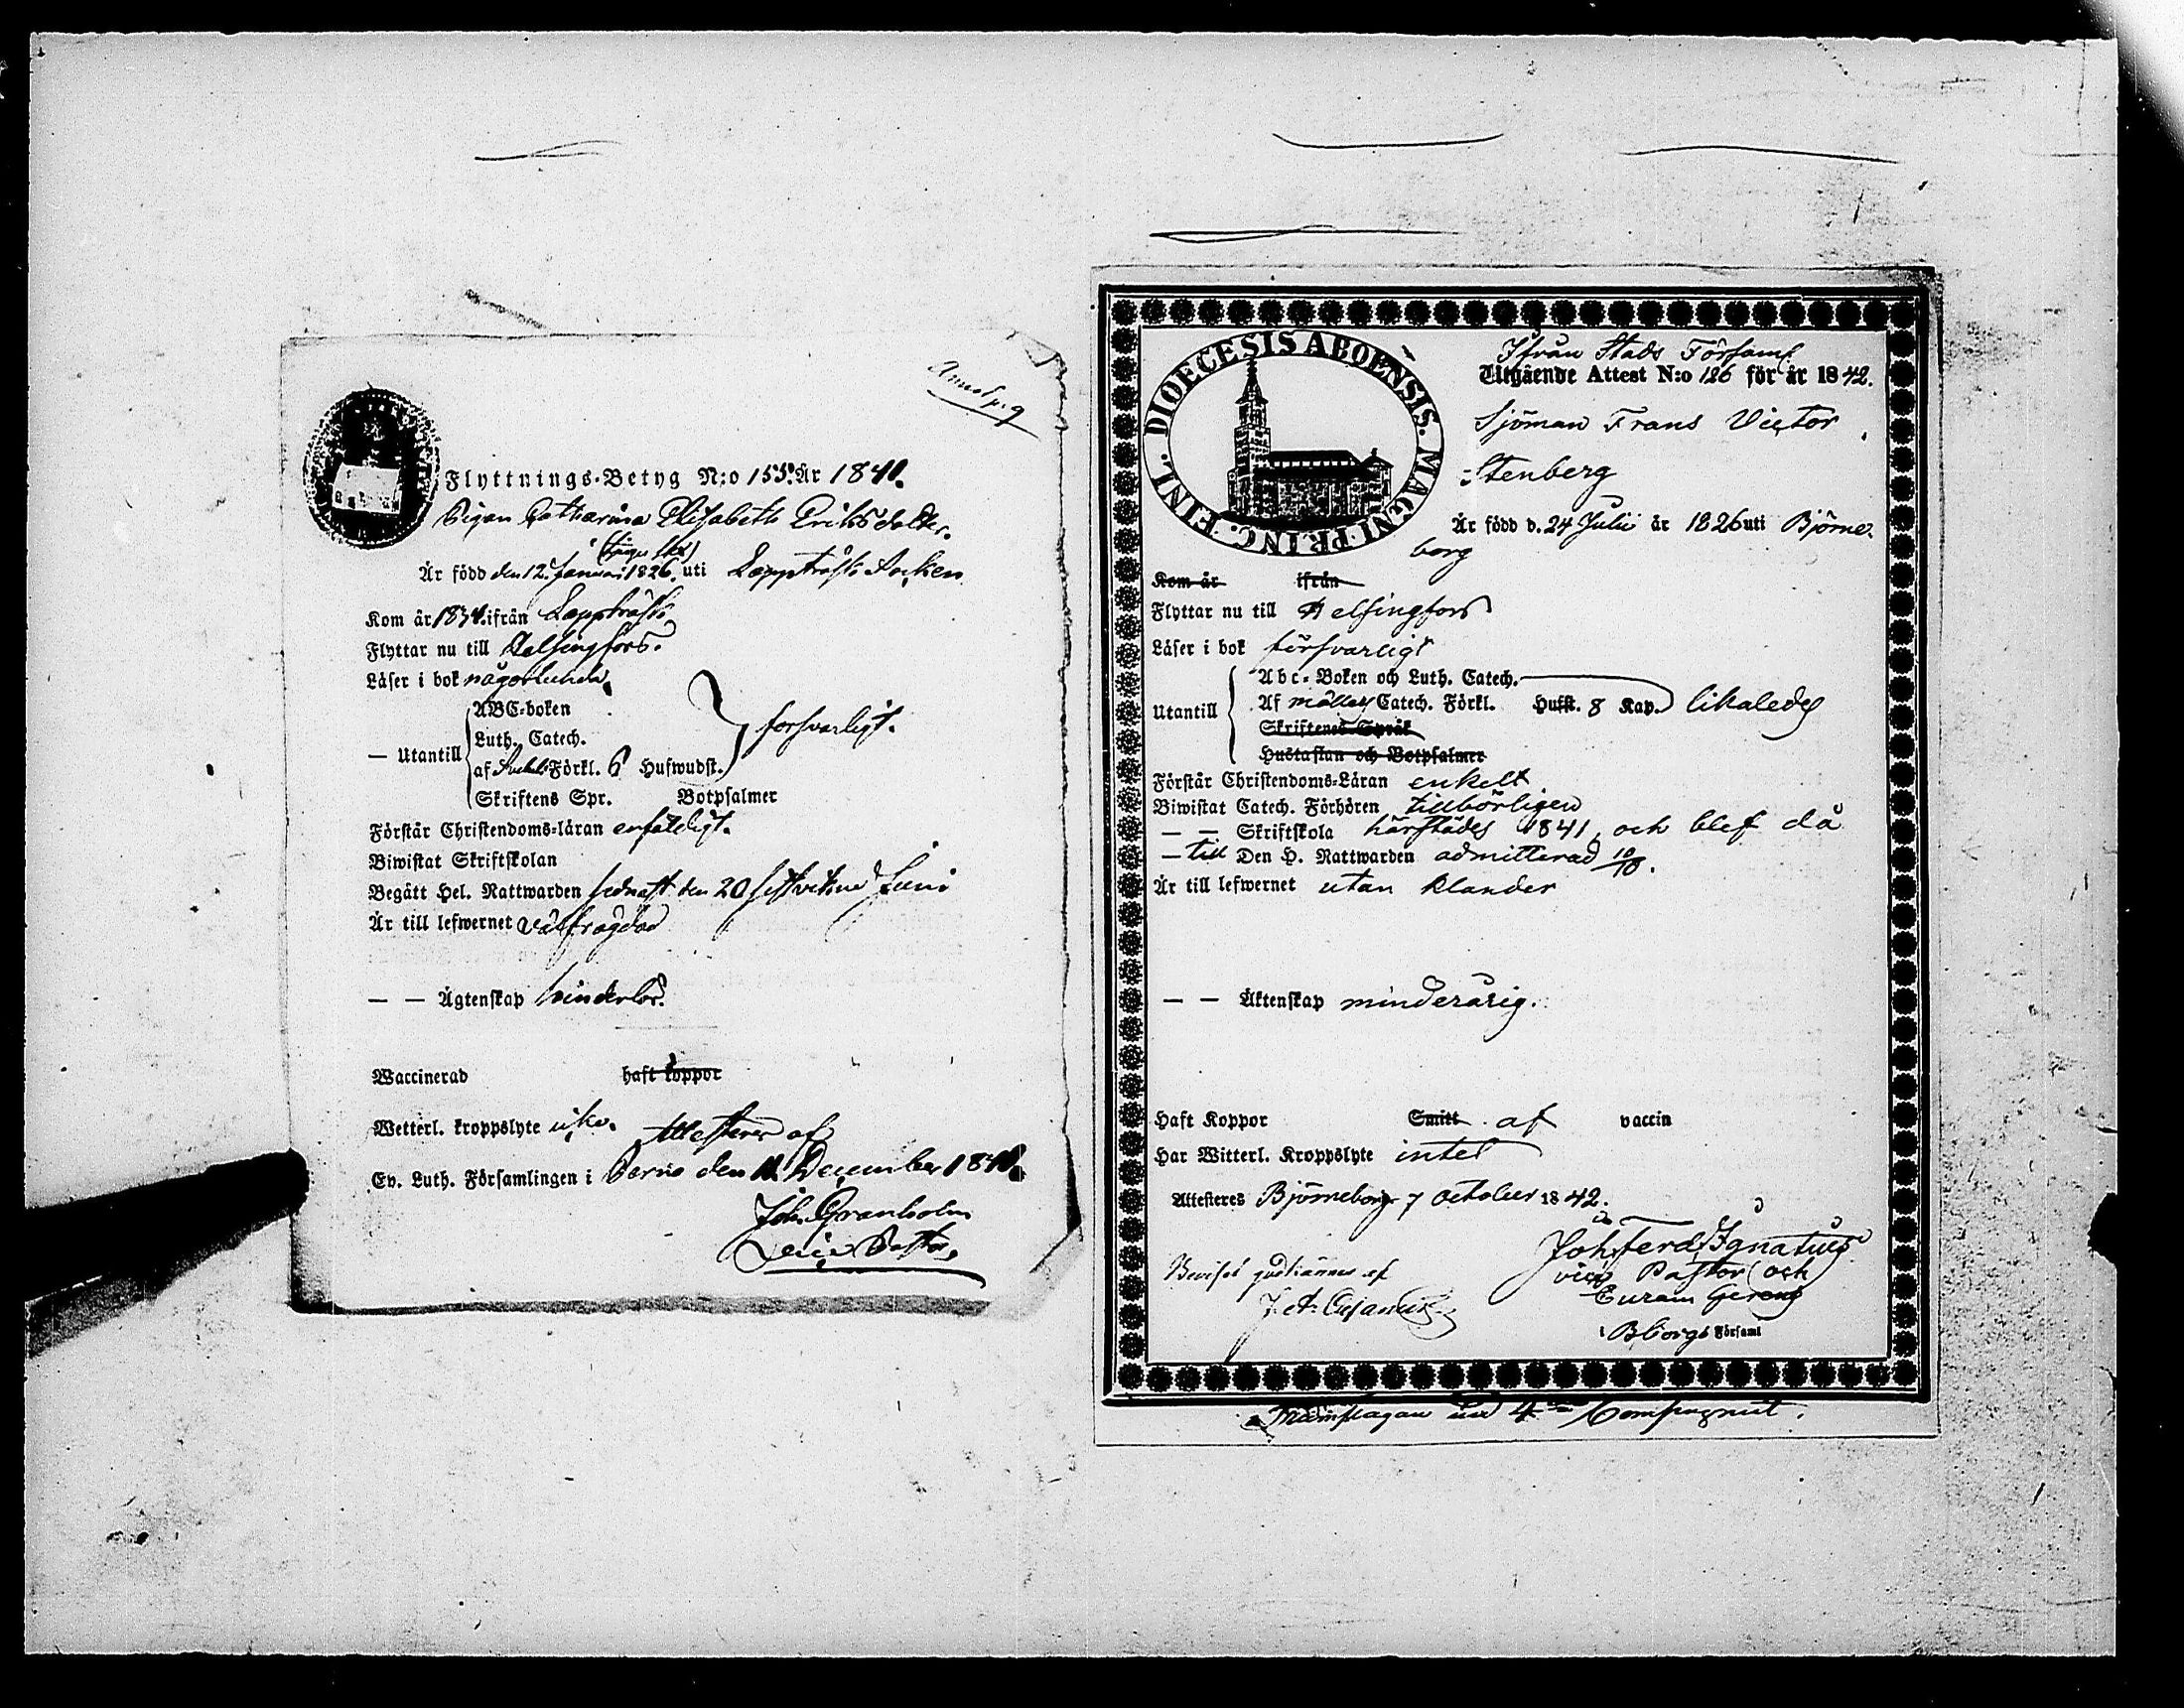 Flyttnings-Betyg N:o 155. År 1841.
Pigan Catharina Elisabeth Eriksdotter.
Är född den 12. Januari 1826. uti Lappträsk Socken
Kom år 1834. ifrån Lappträsk.
Flyttar nu till Helsingfors.
Läser i bok någorlunda.
— Utantill
ABC-boken
Luth. Catech.
af Förkl. 6 Hufwudst.
Skriftens Spr. Botpsalmer
försvarligt.
Förstår Christendoms-läran enfaldigt.
Biwistat Skriftskolan
Begått Hel. Nattwarden sednast den 20 sistvekne Juni
Är till lefwernet välfrägdad
— — Ägtenskap hinderlös.
Waccinerad haft koppor
Wetterl. kroppslyte icke. Attesterar af
Ev. Luth. Församlingen i Perno den 11. December 1841.
Joh. Granholm
Vice Pastor.
DIOECESIS ABOENSIS. MAGNI PRINC. FINL.
Ifrån Stads Församl.
Utgående Attest N:o 126 för år 1842.
Sjöman Frans Victor
Stenberg
Är född d. 24 Julii år 1826 uti Björne-
borg
Kom år ifrån
Flyttar nu till Helsingfors
Läser i bok försvarligt
Utantill
Abc-Boken och Luth. Catech.
Af möllers Catech. Förkl. Hufst. 8 Kap. likaledes
Skriftenes Språk
Hustaflan och Botpsalmer
Förstår Christendoms-Läran enkelt
Biwistat Catech. Förhören tillbörligen
— — Skriftskola härstädes 1841, och blef då
— till Den H. Nattwarden admitterad 10/10.
Är till lefwernet utan klander
— — Äktenskap minderårig.
Haft Koppor Smitt af vaccin
Har Witterl. Kroppslyte intet
Attesteres Björneborg 7 october 1842.
Joh. Ferd. Ignatius
vice Pastor och
Curam Gerens
i Bborgs Församl
Beviset godkännes af